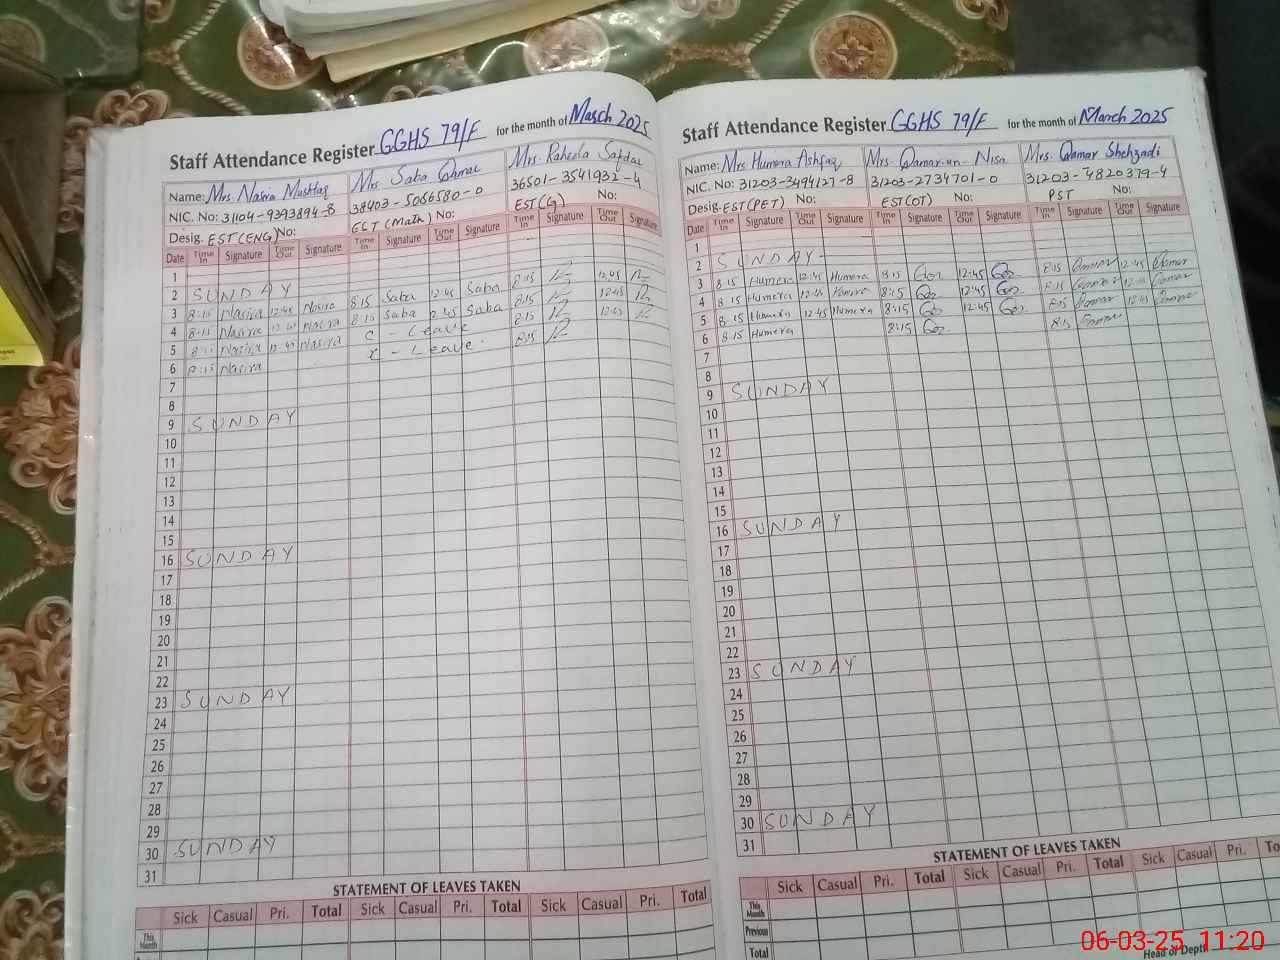 Staff Attendance Register GGHS 79/F for the month of March 2025
Name: Mrs. Nasira Mushtaq Mrs. Saba Mrs. Raheela Safdar
NIC. No: 31104-9393894-8 38403-5066580-0 36501-3541932-4
Desig. EST(ENG) No: (Math) No: EST(G) No:
Date Time In Signature Time Out Signature Time In Signature Time Out Signature Time In Signature Time Out Signature
1
2 SUNDAY
3 8:15 Nasira 12:45 Nasira 8:15 Saba 12:45 Saba 8:15 12:45
4 8:15 Nasira 12:45 Nasira 8:15 Saba 12:45 Saba 8:15 12:45
5 8:15 Nasira 12:45 Nasira C - Leave 8:15 12:45
6 8:15 Nasira - Leave 8:15
7
8
9 SUNDAY
10
11
12
13
14
15
16 SUNDAY
17
18
19
20
21
22
23 SUNDAY
24
25
26
27
28
29
30 SUNDAY
31
STATEMENT OF LEAVES TAKEN
Sick Casual Pri. Total Sick Casual Pri. Total Sick Casual Pri. Total
This Month
Staff Attendance Register GGHS 79/F for the month of March 2025
Name: Mrs Humera Ashfaq Mrs. Qamar-un-Nisa Mrs. Qamar Shehzadi
NIC. No: 31203-3494127-8 31203-2734701-0 31203-4820379-4
Desig. EST(PET) No: EST(OT) No: PST No:
Date Time In Signature Time Out Signature Time In Signature Time Out Signature Time In Signature Time Out Signature
1
2 SUNDAY
3 8:15 Humera 12:45 Humera 8:15 12:45 8:15 Qamar 12:45 Qamar
4 8:15 Humera 12:45 Humera 8:15 12:45 8:15 Qamar 12:45 Qamar
5 8:15 Humera 12:45 Humera 8:15 12:45 8:15 Qamar 12:45 Qamar
6 8:15 Humera 8:15 8:15 Qamar
7
8
9 SUNDAY
10
11
12
13
14
15
16 SUNDAY
17
18
19
20
21
22
23 SUNDAY
24
25
26
27
28
29
30 SUNDAY
31
STATEMENT OF LEAVES TAKEN
Sick Casual Pri. Total Sick Casual Pri. Total Sick Casual Pri.
This Month
Previous
Total
Head of Deptt
06-03-25 11:20